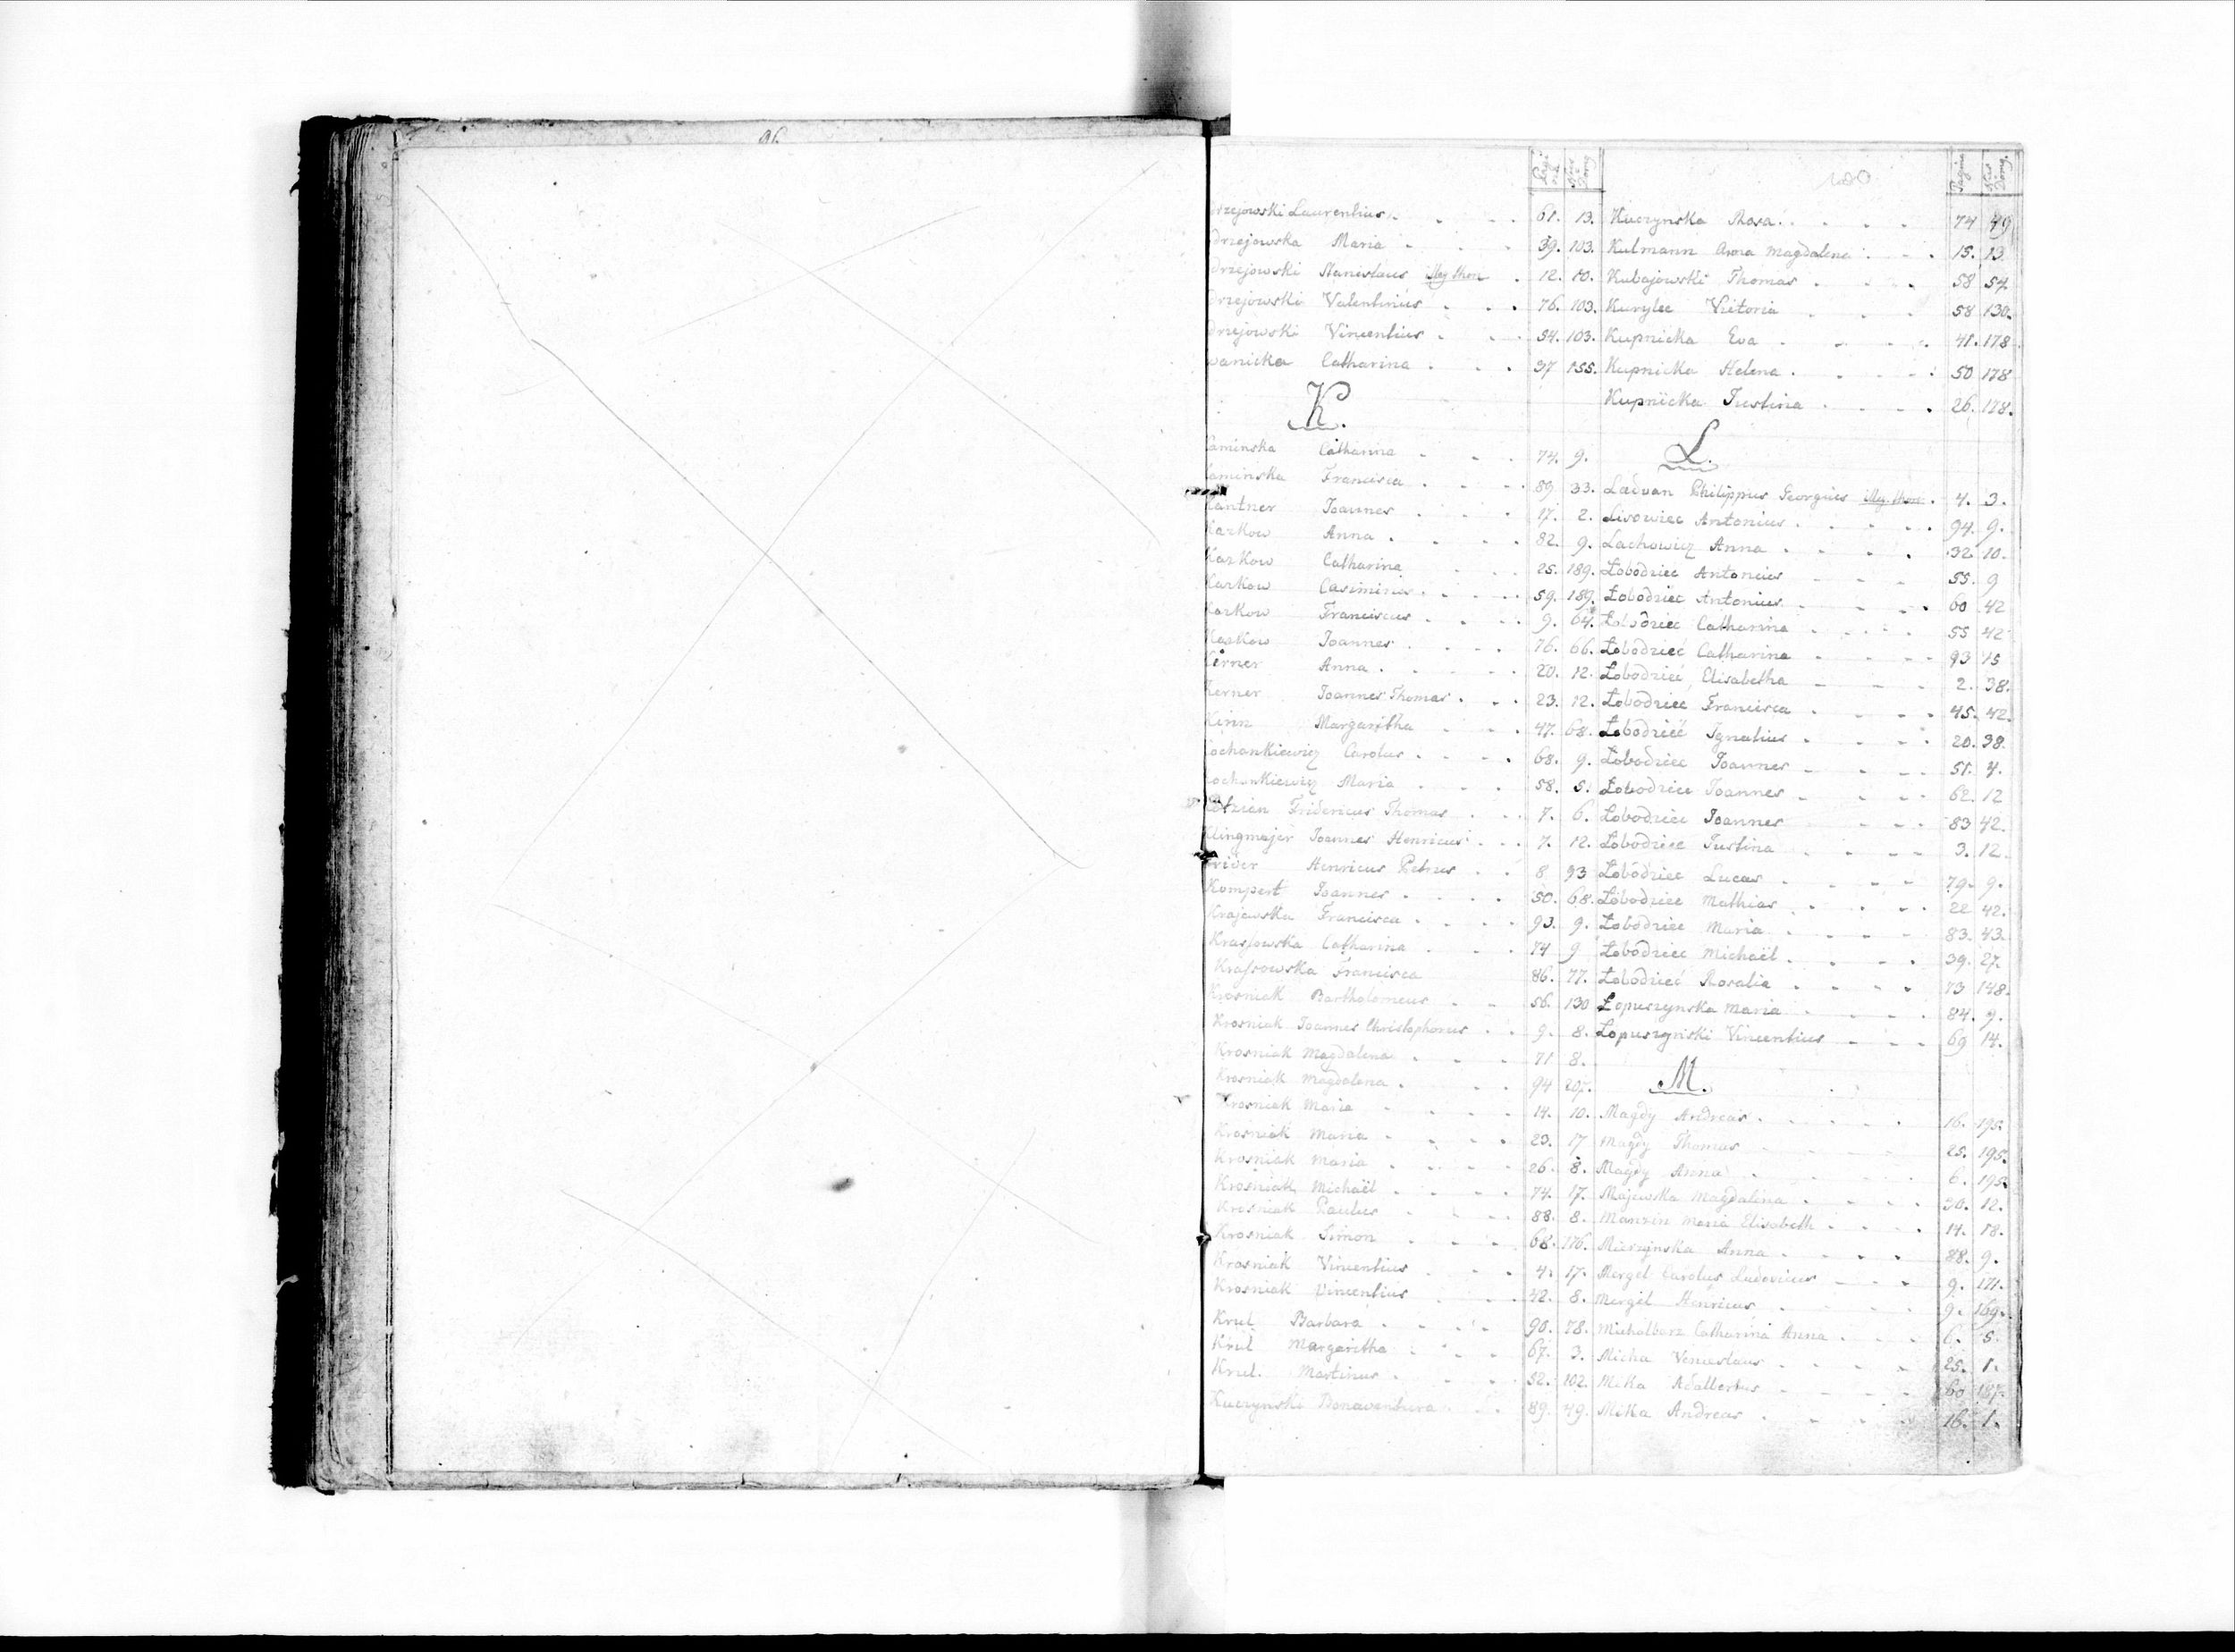 96.
Pagi- Nus Domg.
rzejowski Laurentius 61. 13.
drzejowska Maria 39. 103.
drzejowski Stanislaus illeg. thori 12. 10.
rzejowski Valentinus 76. 103.
drzejowski Vincentius 54. 103.
wanicka Catharina 37 155.
K.
aminska Catharina 74. 9.
aminska Francisca 89. 33.
Kantner Joannes 17. 2.
Kazkow Anna 82. 9.
Kazkow Catharina 25. 189.
Kazkow Casimirus 59. 189.
Kazkow Franciscus 9. 64.
Kazkow Joannes 76. 66.
Kerner Anna 20. 12.
Kerner Joannes Thomas 23. 12.
Kinn Margaritha 47. 68.
Kochankiewicz Carolus 68. 9.
Kochankiewicz Maria 58. 5.
Fridericus Thomas 7. 6.
Klingmajer Joannes Henricus 7. 12.
Henricus Petrus 8. 93
Kompert Joannes 50. 68.
Krajewska Francisca 93. 9.
Krassowska Catharina 74 9
Krassowska Francisca 86. 77.
Krosniak Bartholomeus 56. 130
Krosniak Joannes Christophorus 9. 8.
Krosniak Magdalena 71 8.
Krosniak Magdalena 94 207.
Krosniak Maria 14. 10.
Krosniak Maria 23. 17
Krosniak Maria 26. 8.
Krosniak Michaël 74. 17.
Krosniak Paulus 88. 8.
Krosniak Simon 68. 176.
Krosniak Vincentius 4. 17.
Krosniak Vincentius 42. 8.
Krul Barbara 90. 78.
Krul Margaritha 67. 3.
Krul. Martinus 52. 102.
Kuczynski Bonaventura 89. 49.
100
Pagina Nus Domg.
Kuczynska Rosa 74 49
Kulmann Anna Magdalena 15. 13.
Kubajowski Thomas 58 54
Kurylec Victoria 58 130.
Kupnicka Eva 41. 178
Kupnicka Helena 50 178
Kupnicka Justina 26. 178.
L.
Ladvan Philippus Georgius illeg. thori 4. 3.
Lisowiec Antonius 94. 9.
Lachowicz Anna 32 10.
Łobodziec Antonius 55. 9
Łobodziec Antonius 60 42
Łobodziec Catharina 55 42
Łobodzieć Catharina 93 15
Łobodzieć Elisabetha 2. 38.
Łobodzieć Francisca 45. 42.
Łobodzieć Ignatius 20. 38.
Łobodziec Joannes 51. 4.
Łobodziec Joannes 62. 12
Łobodziec Joannes 83 42.
Łobodziec Justina 3. 12.
Łobodziec Lucas 79. 9.
Łobodziec Mathias 22 42.
Łobodziec Maria 83. 43.
Łobodziec Michaël 39. 27.
Łobodzieć Rosalia 73 148.
Łopuszynska Maria 84. 9.
Łopuszyński Vincentius 69 14.
M.
Magdy Andreas 16. 195.
Magdy Thomas 25. 195.
Magdy Anna 6. 195.
Majewska Magdalena 30. 12.
Manzin Maria Elisabeth 14. 18.
Mierzynska Anna 88. 9.
Mergel Carolus Ludovicus 9. 171.
Mergel Henricus 9. 169.
Michalbarz Catharina Anna 6. 5.
Micha Venceslaus 25. 1.
Mika Adalbertus 60 187.
Mika Andreas 16. 1.